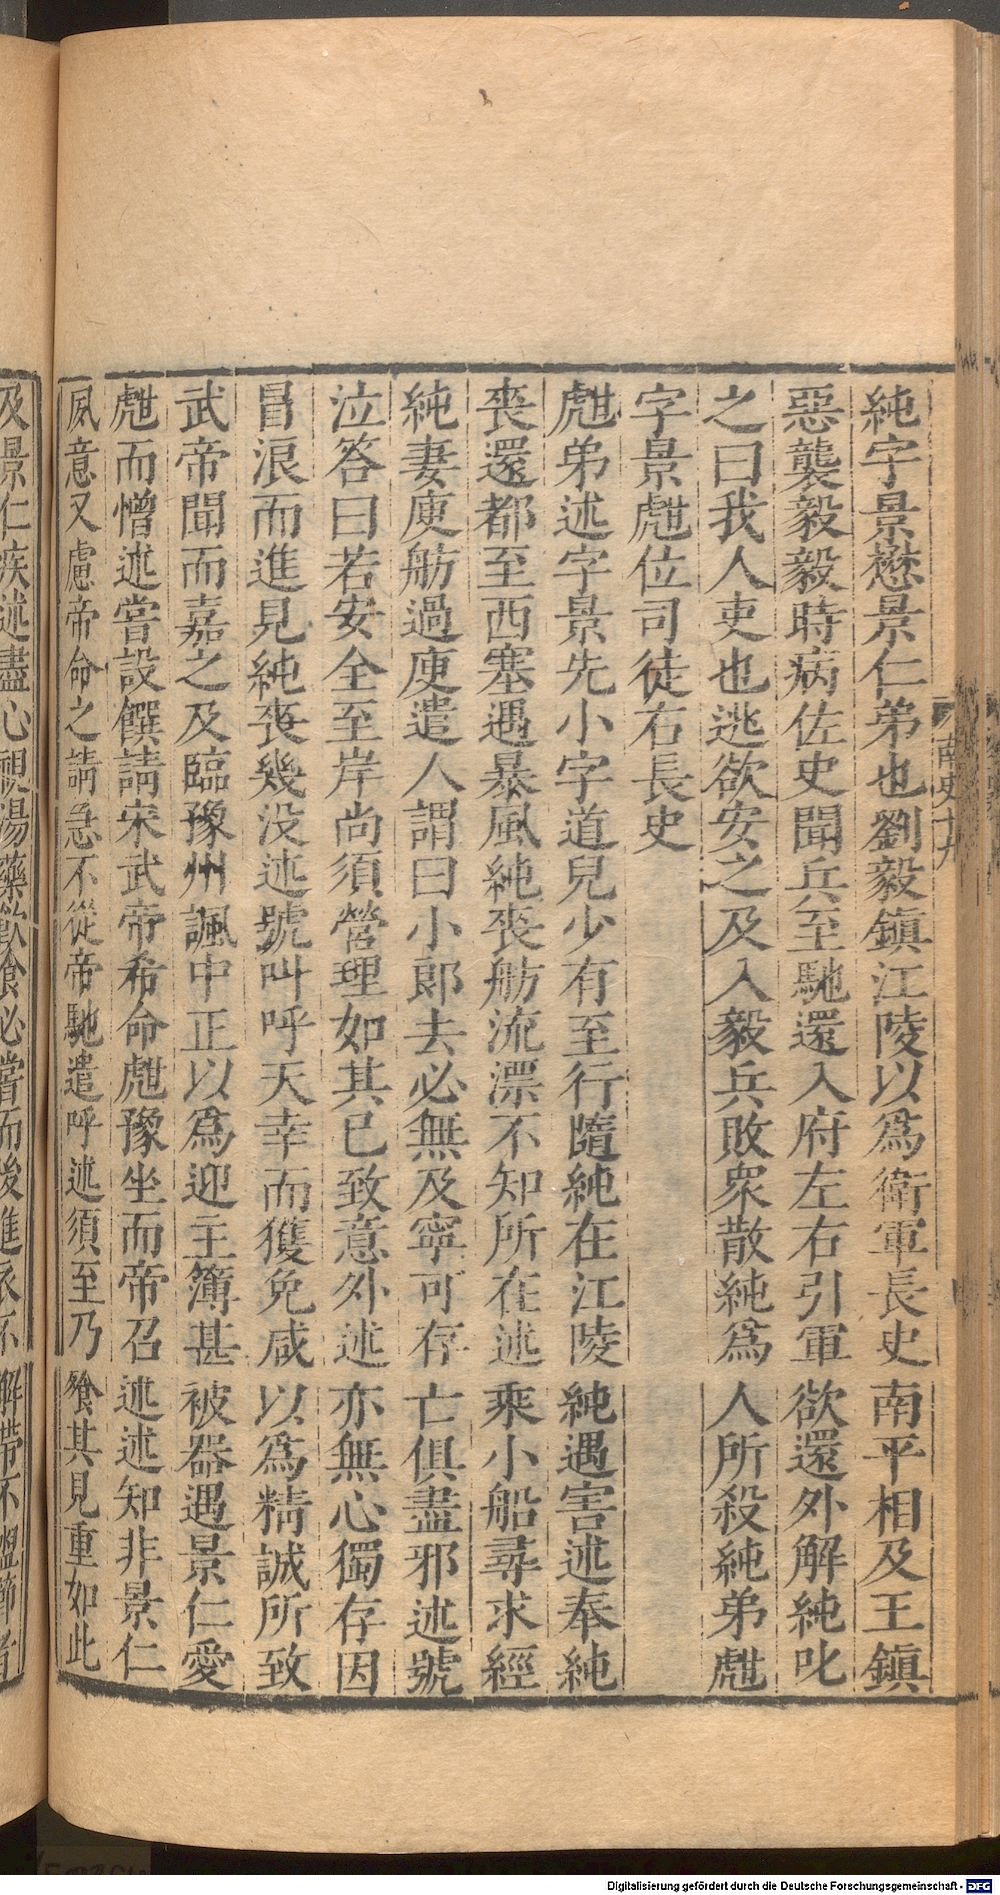 純字景懋景仁弟也劉毅鎮江陵以爲衛軍長史南平相及王鎮
惡襲毅毅時病佐史聞兵至馳還入府左右引軍欲還外解純叱
之曰我人吏也逃欲安之及入毅兵敗衆散純爲人所殺純弟𪏆
字景𪏆位司徒右長史
𪏆弟述字景先小字道兒少有至行隨純在江陵純遇害述奉純
喪還都至西塞遇暴風純喪舫流漂不知所在述乘小船尋求經
純妻庾舫過庾遣人謂曰小郎去必無及寧可存亡俱盡邪述號
泣答曰若安全至岸尚須營理如其已致意外述亦無心獨存因
冒浪而進見純喪幾没述號叫呼天幸而獲免咸以爲精誠所致
武帝聞而嘉之及臨豫州諷中正以爲迎主簿甚被器遇景仁愛
𪏆而憎述嘗設饌請宋武帝希命𪏆豫坐而帝召述述知非景仁
夙意又慮帝命之請急不從帝馳遣呼述須至乃飱其見重如此
及景仁疾述盡心視湯藥飲食必嘗而後進衣不解帶不盥櫛者
南史十九
Digitalisierung gefördert durch die Deutsche Forschungsgemeinschaft - DFG